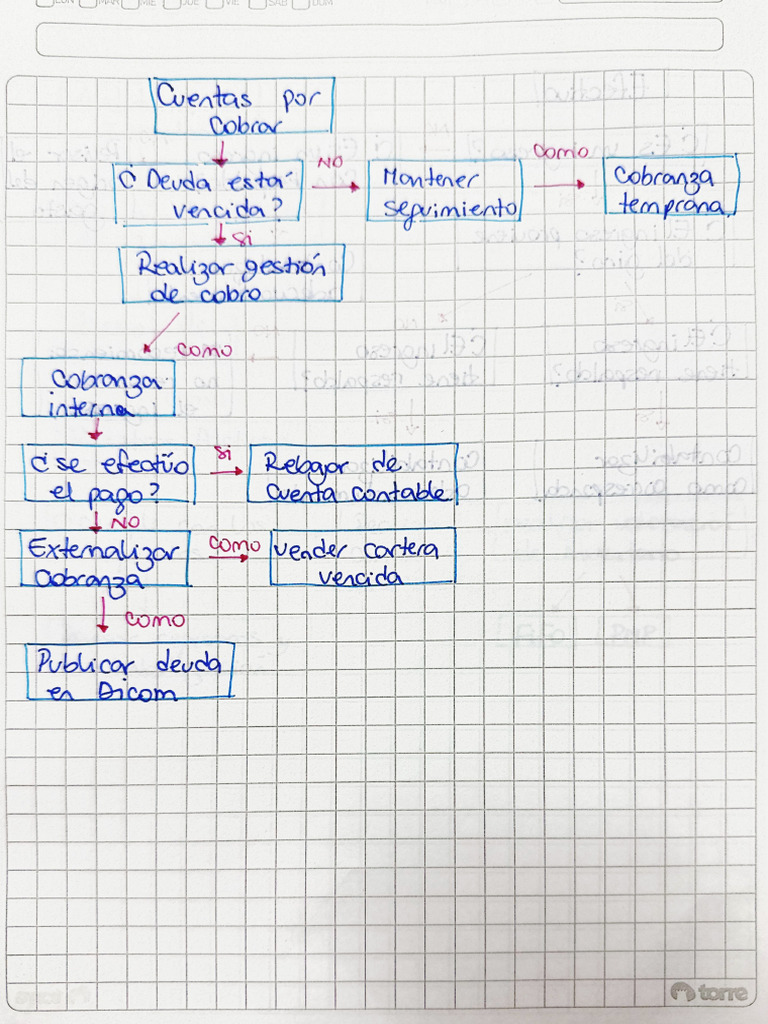 LUN MAR MIE JUE VIE SAB DOM
Cuentas por
Cobrar
¿ Deuda está
vencida?
NO
Mantener
seguimiento
como
Cobranza
temprana
Si
Realizar gestión
de cobro
como
Cobranza
interna
¿se efectúo
el pago?
Si
Rebajar de
Cuenta contable
NO
Externalizar
Cobranza
como
Vender cartera
vencida
como
Publicar deuda
en Dicom
torre